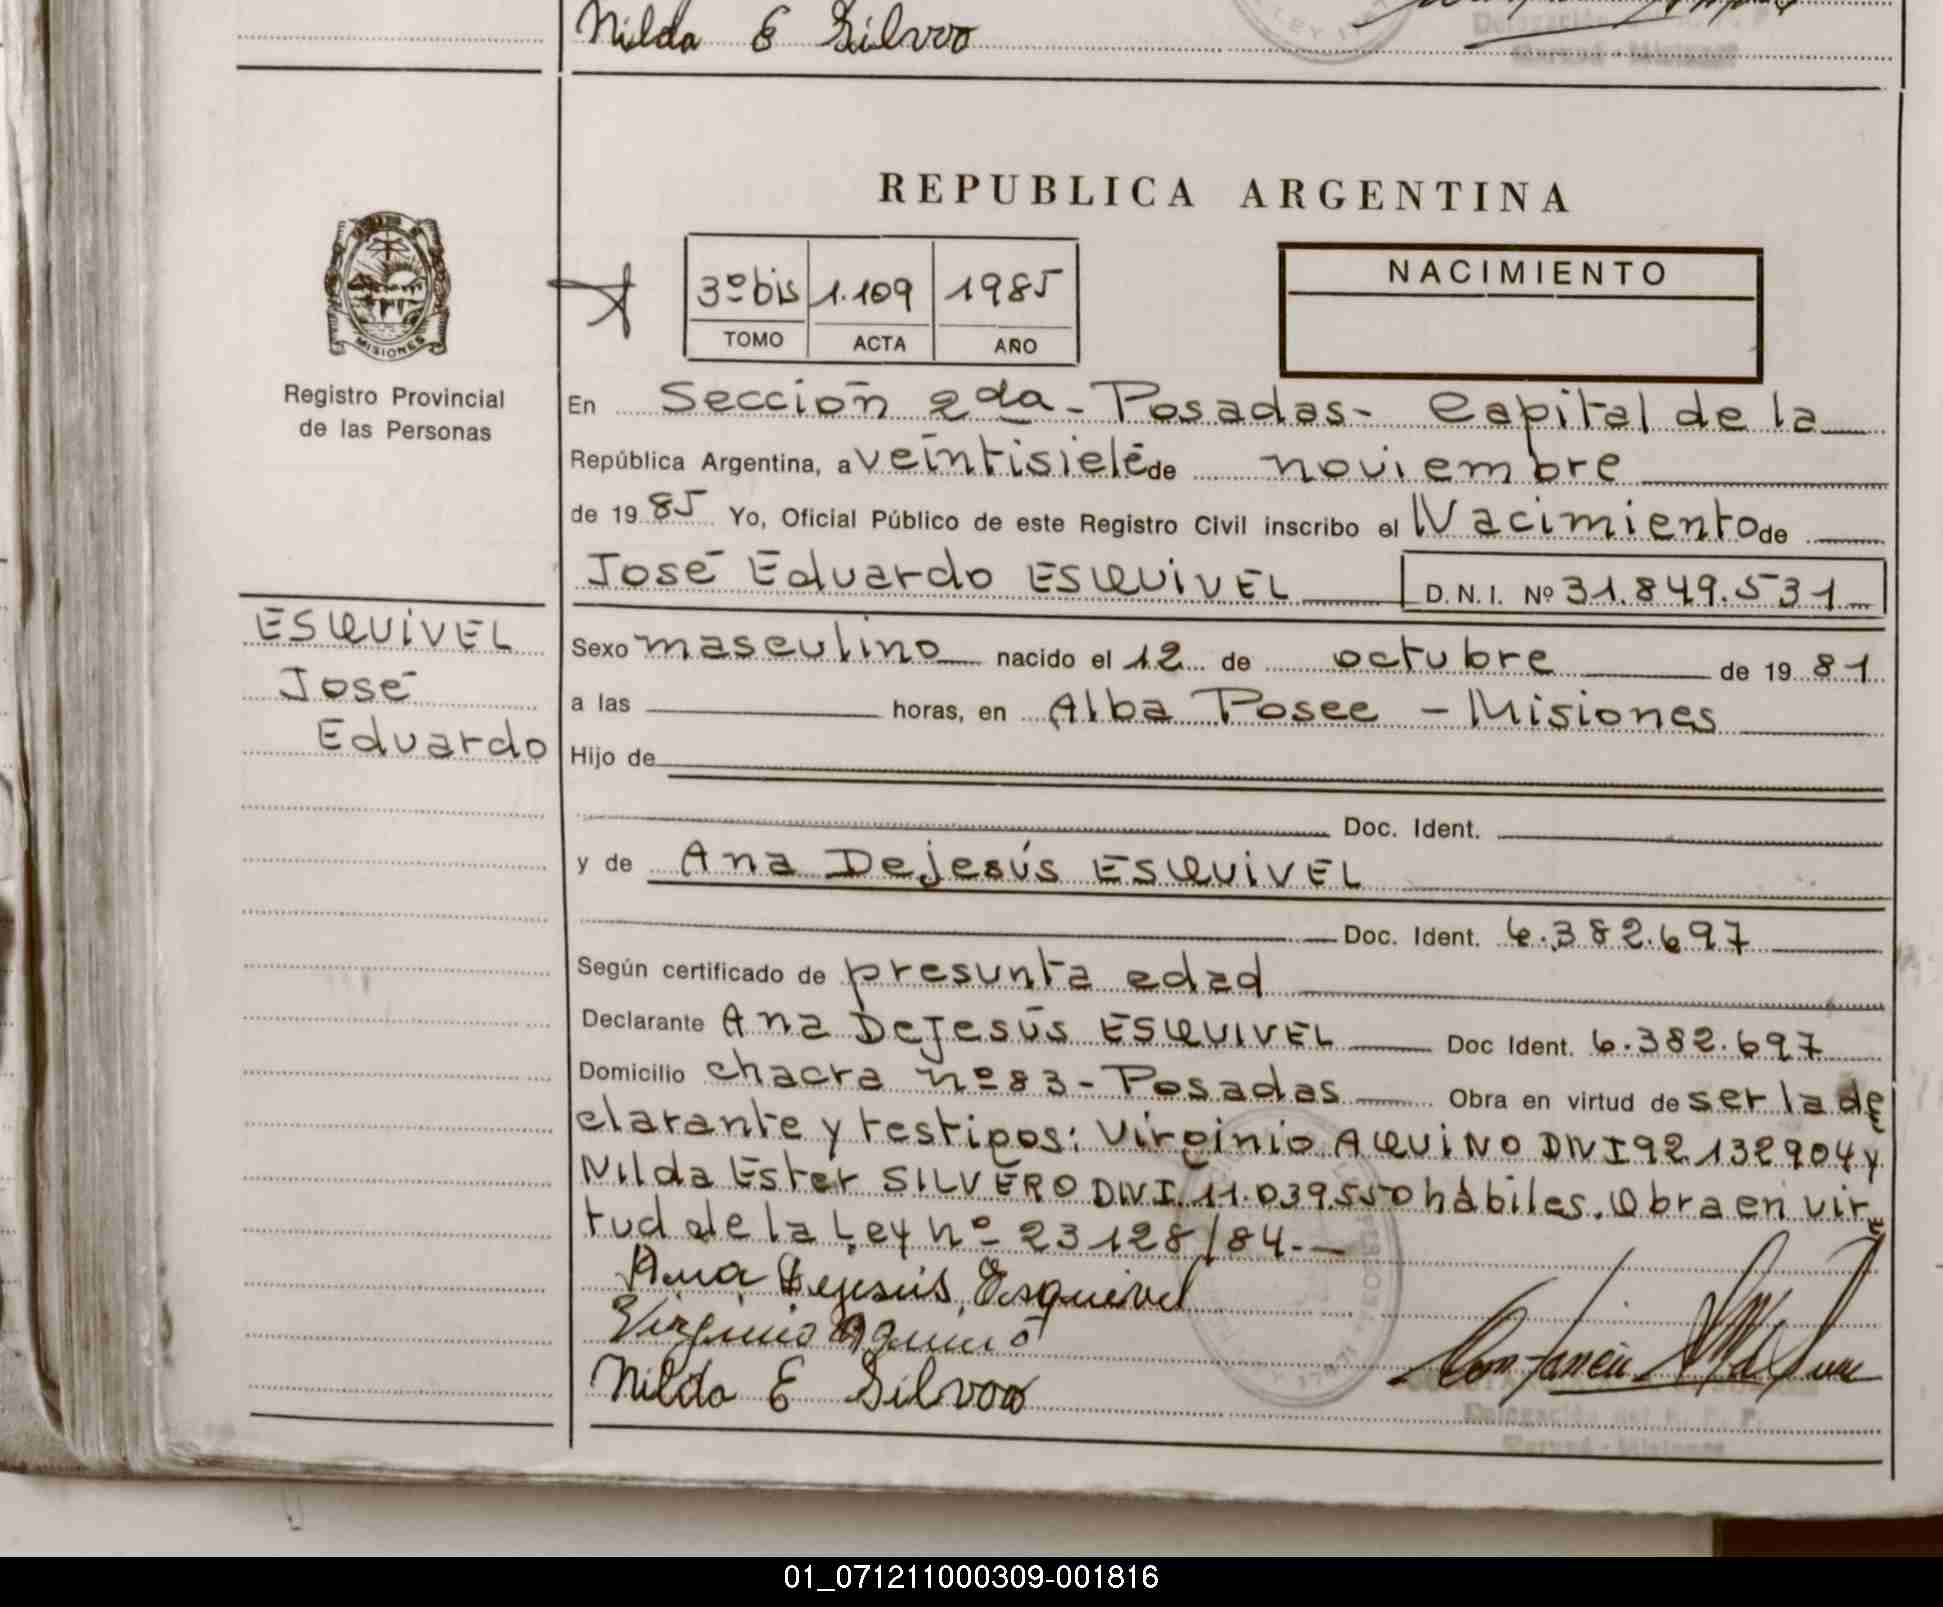 Nilda E Silvero
REPUBLICA ARGENTINA
3º bis 1.109 1985
TOMO ACTA AÑO
NACIMIENTO
MISIONES
Registro Provincial
de las Personas
En Sección 2da - Posadas - Capital de la
República Argentina, a veintisiete de noviembre
de 1985 Yo, Oficial Público de este Registro Civil inscribo el Nacimiento de
José Eduardo ESQUIVEL D.N.I. Nº 31.849.531
ESQUIVEL
José
Eduardo
Sexo masculino nacido el 12 de octubre de 1981
a las horas, en Alba Posee - Misiones
Hijo de
Doc. Ident.
y de Ana Dejesús ESQUIVEL
Doc. Ident. 6.382.697
Según certificado de presunta edad
Declarante Ana Dejesús ESQUIVEL Doc Ident. 6.382.697
Domicilio chacra nº 83 - Posadas Obra en virtud de ser la de
clarante y testigos: Virginio AQUINO DNI 92.132904 y
Nilda Ester SILVERO DNI. 11.039.550 hábiles. Obra en vir
tud de la Ley nº 23128/84.-
Ana Dejesús Esquivel
Virginio Aquino
Nilda E Silvero
Delegación del R. P. P.
01_071211000309-001816